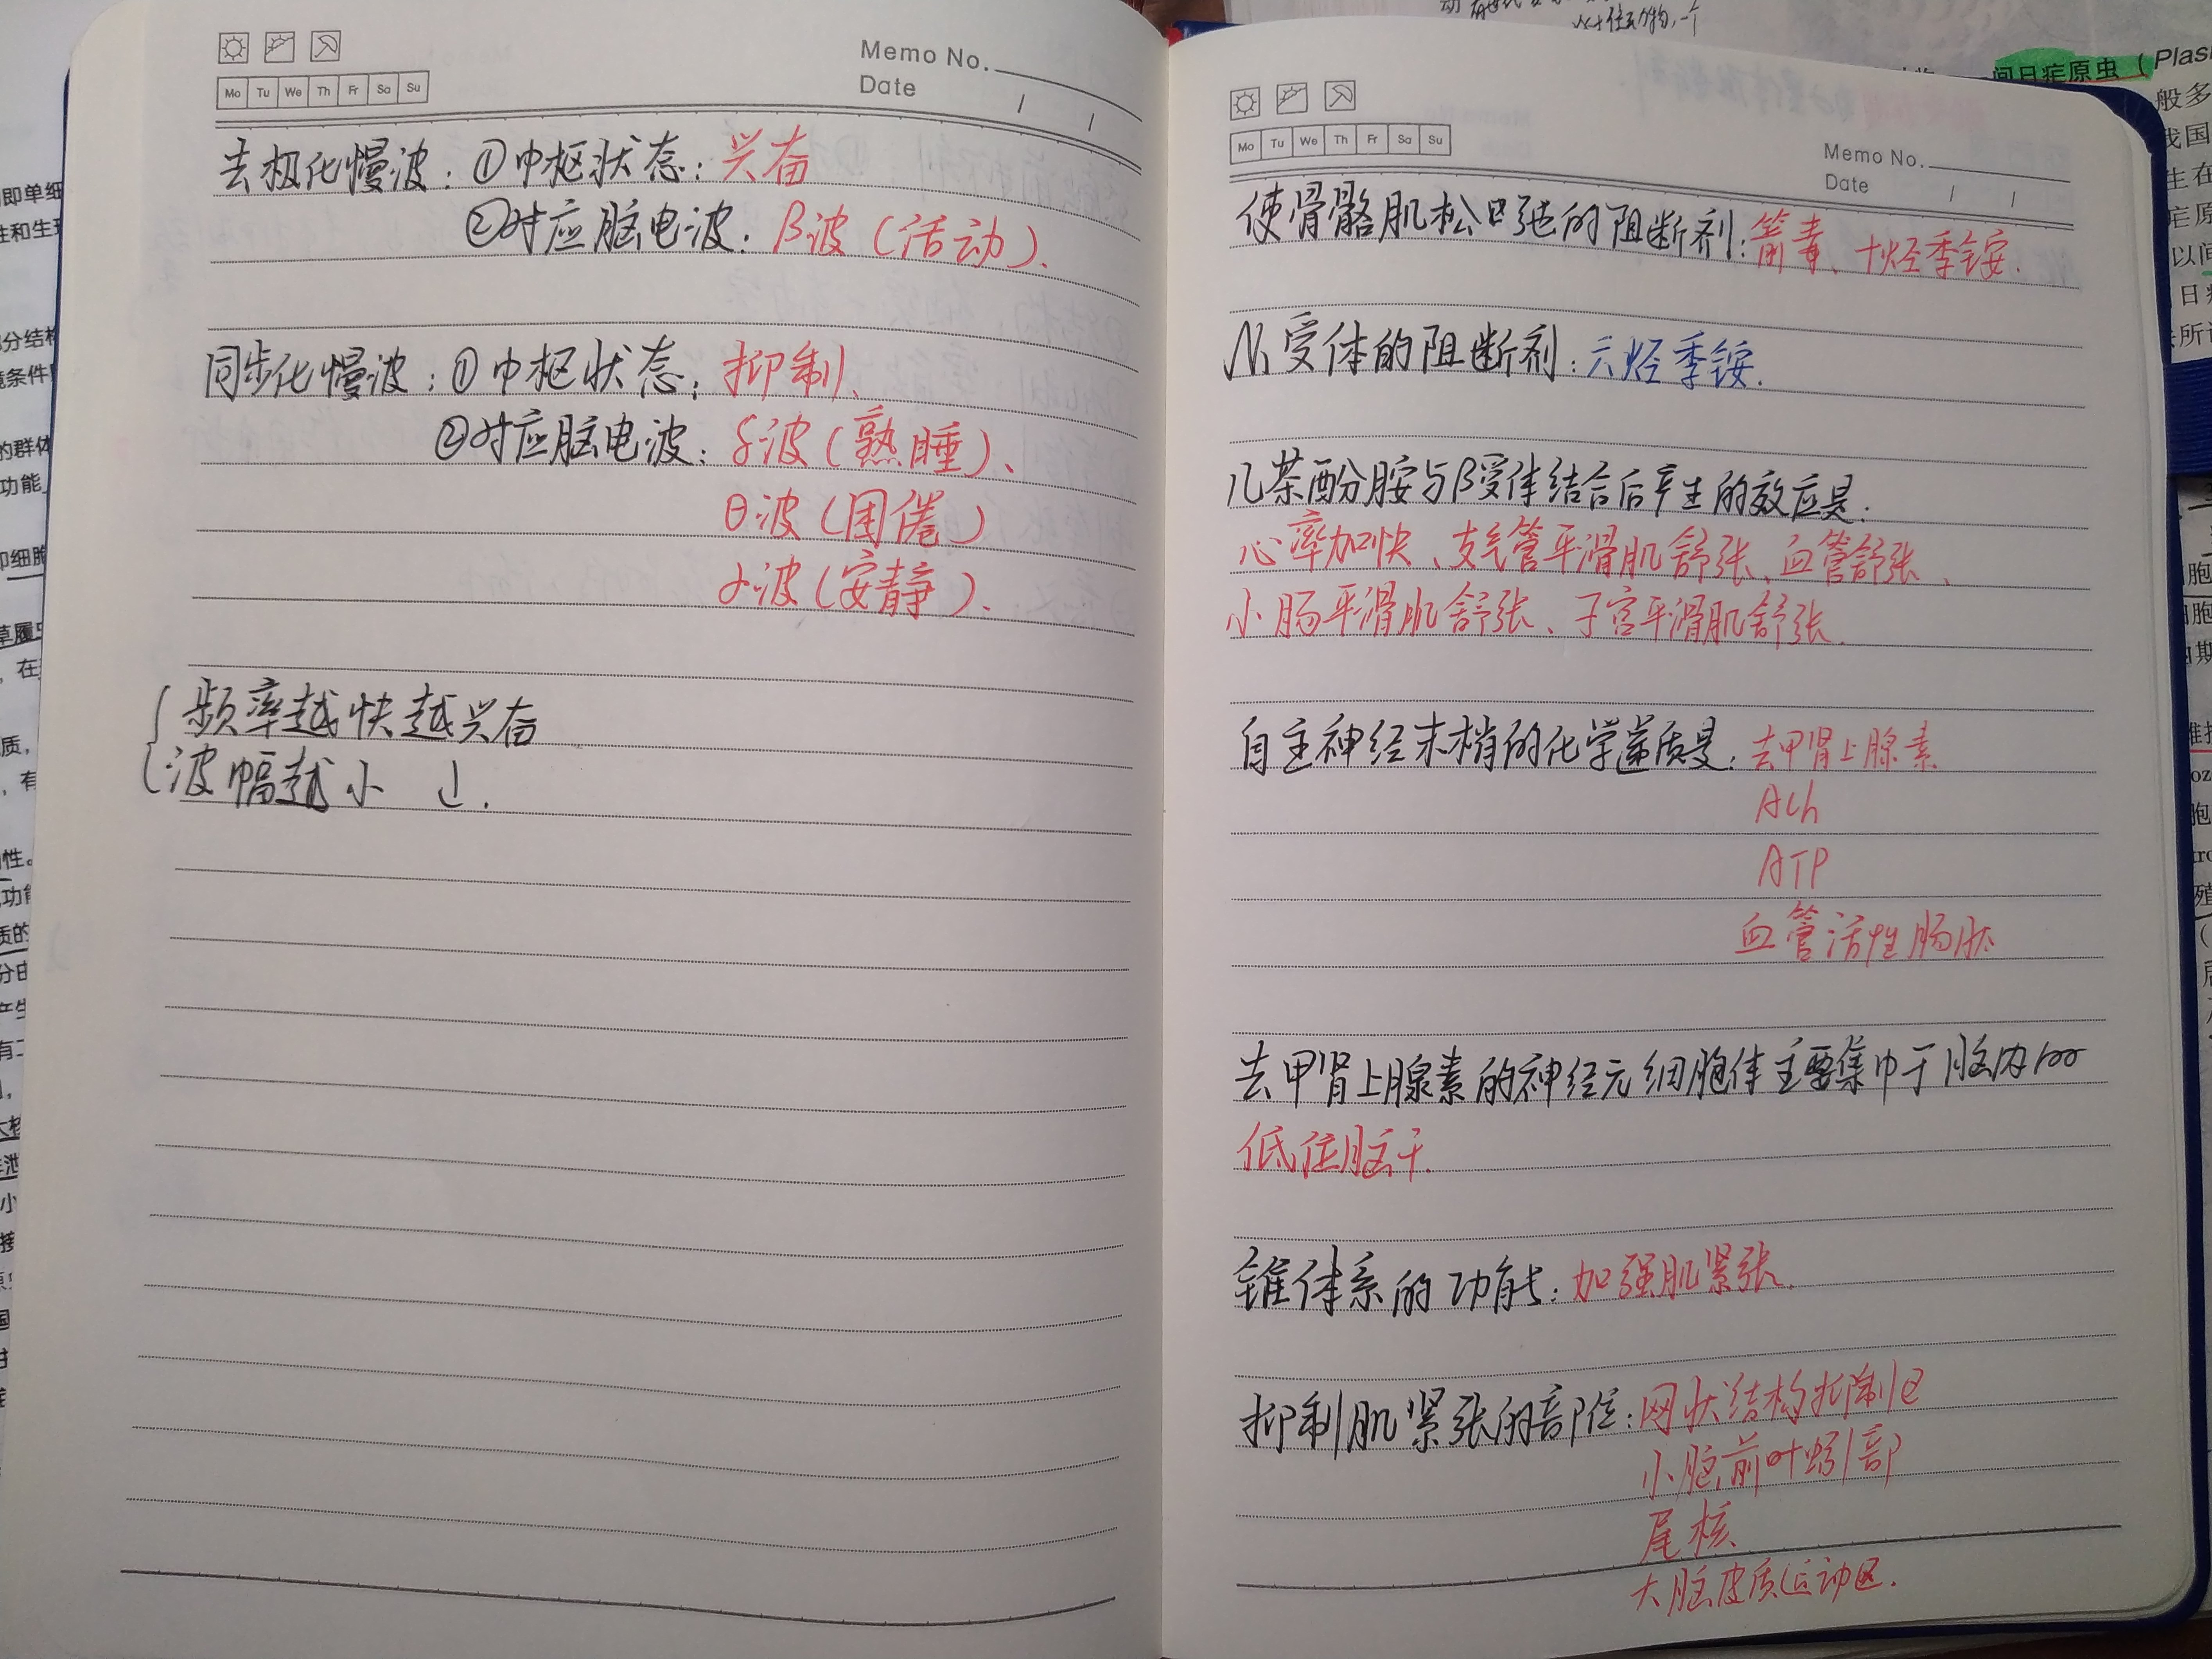 Memo No.
Date / /
Mo Tu We Th Fr Sa Su
去极化慢波：①中枢状态：兴奋
②对应脑电波：β波（活动）.
同步化慢波：①中枢状态：抑制、
②对应脑电波：δ波（熟睡）、
θ波（困倦）
α波（安静）.
频率越快越兴奋
波幅越小 ↓.
Memo No.
Date / /
Mo Tu We Th Fr Sa Su
使骨骼肌松弛的阻断剂：箭毒、十烃季铵.
N₁受体的阻断剂：六烃季铵.
儿茶酚胺与β受体结合后产生的效应是：
心率加快、支气管平滑肌舒张、血管舒张、
小肠平滑肌舒张、子宫平滑肌舒张.
自主神经末梢的化学递质是：去甲肾上腺素
ACh
ATP
血管活性肠肽
去甲肾上腺素的神经元细胞体主要集中于脑内
低位脑干.
锥体系的功能：加强肌紧张.
抑制肌紧张的部位：网状结构抑制区
小脑前叶蚓部
尾核
大脑皮质运动区.
间日疟原虫（Plas
般多
我国
生在
以间
日疟
所谓
即单细
性和生
部分结构
境条件
的群体
功能
即细胞
草履虫
，在
质，
，有